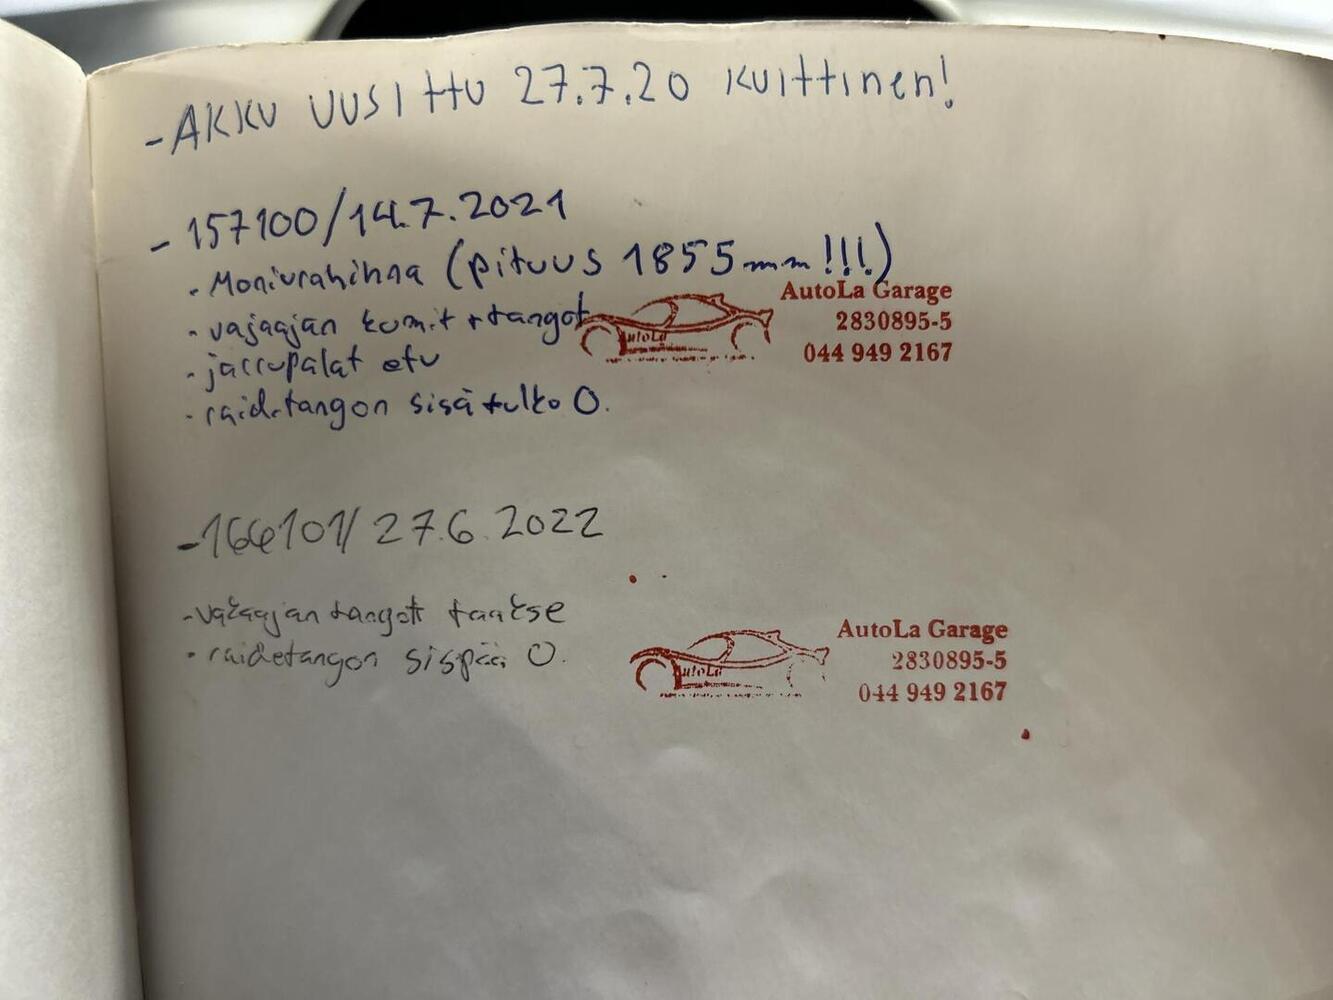 - AKKU UUSITTU 27.7.20 KUITTINEN!
- 157100/14.7.2021
• Moniurahihna (pituus 1855mm!!!)
AutoLa Garage
• vajaajan kumit + tangot
AutoLa
2830895-5
• jarrupalat etu
044 949 2167
• raidetangon sisä tulko O.
- 166101/ 27.6.2022
- vakaajan tangot taakse
AutoLa Garage
• raidetangon sispää O.
AutoLa
2830895-5
044 949 2167